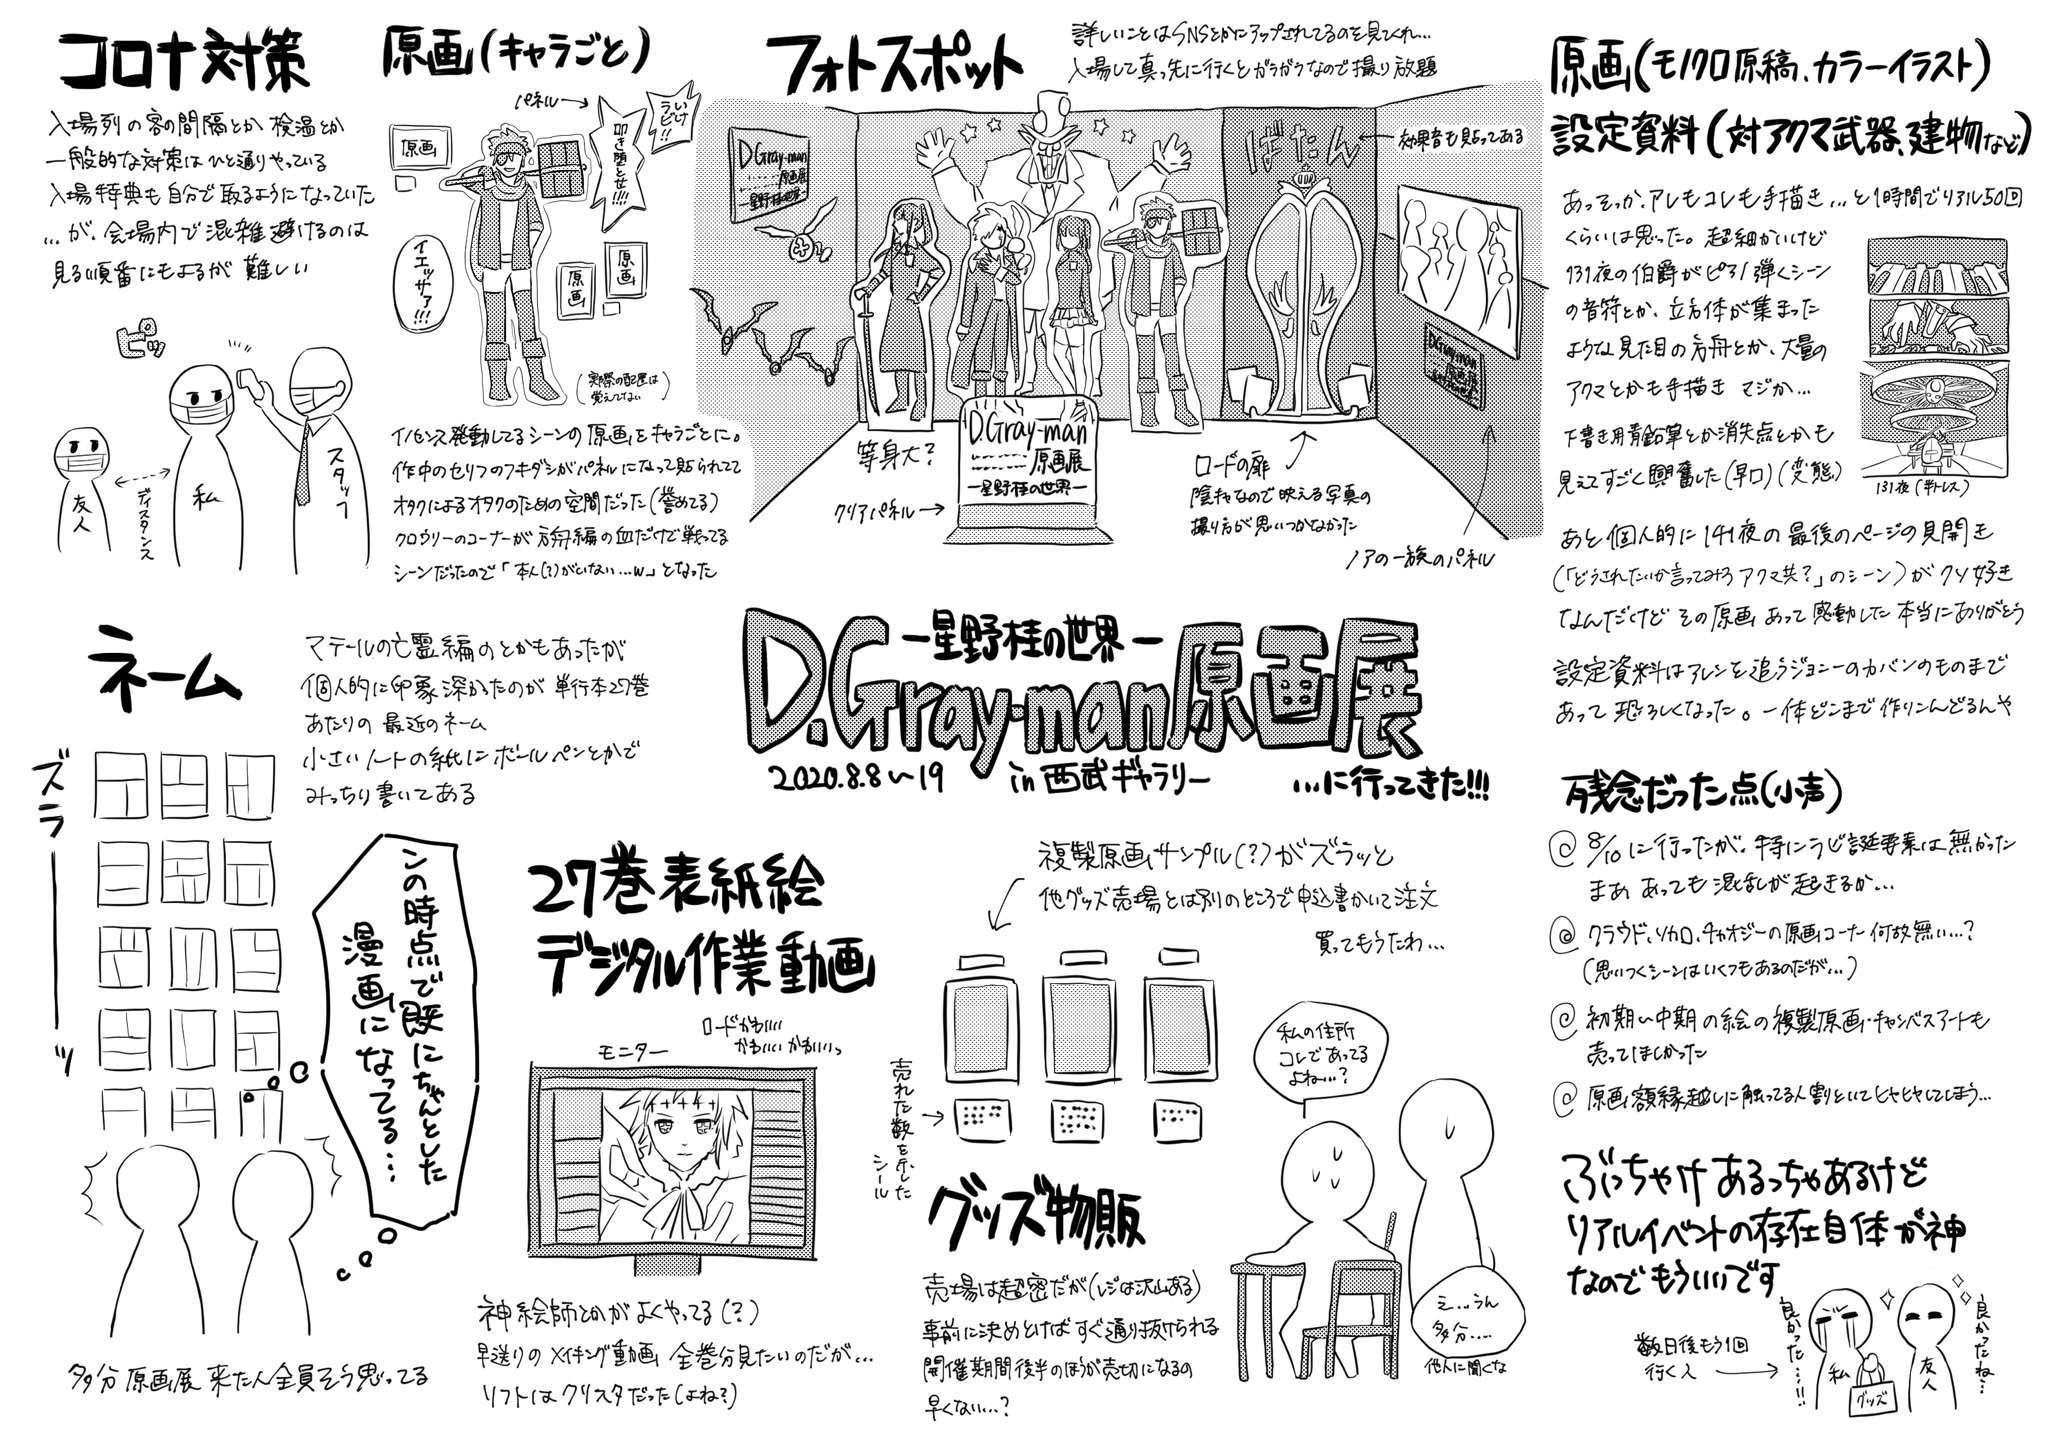 コロナ対策
入場列の客の間隔とか検温とか
一般的な対策はひと通りやっている
入場特典も自分で取るようになっていた
…が、会場内で混雑避けるのは
見る順番にもよるが難しい
ピッ
友人
ディスタンス
私
スタッフ
原画(キャラごと)
パネル→
原画
いけラビ!!
叩き堕とせ!!!!
イエッサァ!!!
原画
原画
(実際の配置は
覚えてない)
イノセンス発動してるシーンの原画をキャラごとに。
作中のセリフのフキダシがパネルになって貼られてて
オタクによるオタクのための空間だった(誉めてる)
クロウリーのコーナーが方舟編の血だけで戦ってる
シーンだったので「本人(?)がいない…w」となった
フォトスポット
詳しいことはSNSとかにアップされてるのを見てくれ…
入場して真っ先に行くとガラガラなので撮り放題
D.Gray-man
原画展
ー星野桂の世界ー
ばたん
←効果音も貼ってある
D.Gray-man
原画展
等身大?
D.Gray-man
原画展
ー星野桂の世界ー
クリアパネル→
ロードの扉
陰キャなので映える写真の
撮り方が思いつかなかった
ノアの一族のパネル
原画(モノクロ原稿、カラーイラスト)
設定資料(対アクマ武器、建物など)
あっそっか、アレもコレも手描き…と1時間でリアル50回
くらいは思った。超細かいけど
131夜の伯爵がピアノ弾くシーン
の音符とか、立方体が集まった
ような見た目の方舟とか、大量の
アクマとかも手描き マジか…
下書き用青鉛筆とか消失点とかも
見えてすごく興奮した(早口)(変態)
131夜(半トレス)
あと個人的に141夜の最後のページの見開き
(「どうされたいか言ってみろアクマ共?」のシーン)がクソ好き
なんだけどその原画あって感動した本当にありがとう
設定資料はアレンを追うジョニーのカバンのものまで
あって恐ろしくなった。一体どこまで作りこんどるんや
D.Gray-man原画展
ー星野桂の世界ー
2020.8.8〜19 in 西武ギャラリー …に行ってきた!!!
ネーム
マテールの亡霊編のとかもあったが
個人的に印象深かったのが単行本27巻
あたりの最近のネーム
小さいノートの紙にボールペンとかで
みっちり書いてある
ズラーーッ
ンの時点で既にちゃんとした
漫画になってる…
多分原画展来た人全員そう思ってる
27巻表紙絵
デジタル作業動画
ロードかわいい
かわいいかわいいっ
モニター
神絵師とかがよくやってる(?)
早送りのメイキング動画 全巻分見たいのだが…
ソフトはクリスタだった(よね?)
複製原画サンプル(?)がズラッと
他グッズ売場とは別のところで申込書かいて注文
買ってもうたわ…
売れた数を示した
シール
グッズ物販
売場は超密だが(レジは沢山ある)
事前に決めとけばすぐ通り抜けられる
開催期間後半のほうが売切になるの
早くない…?
私の住所
コレであってる
よね…?
え…うん
多分……
他人に聞くな
残念だった点(小声)
◎8/10に行ったが、特にラビ誕要素は無かった
まああっても混乱が起きるか…
◎クラウド、ソカロ、チャオジーの原画コーナー何故無い…?
(思いつくシーンはいくつもあるのだが…)
◎初期〜中期の絵の複製原画・キャンバスアートも
売ってほしかった
◎原画額縁越しに触ってる人割といてヒヤヒヤしてしまう…
ぶっちゃけあるっちゃあるけど
リアルイベントの存在自体が神
なのでもういいです
数日後もう1回
行く人 →
良かった…!!
私
グッズ
友人
良かったね…